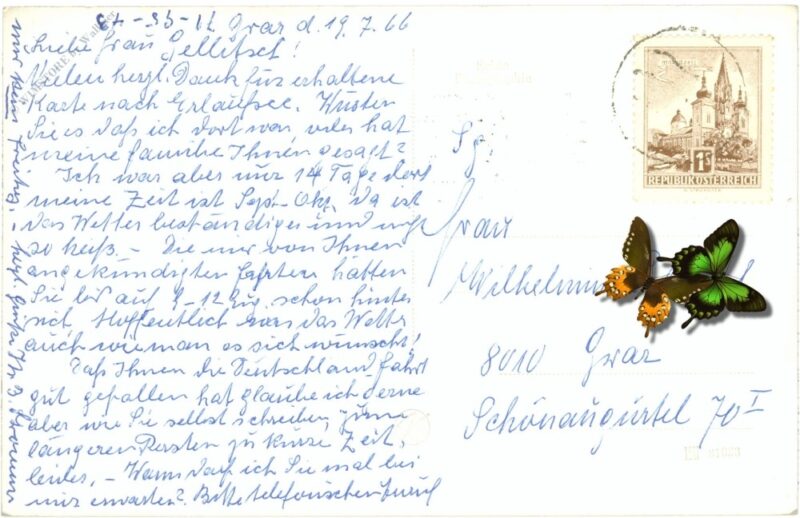 84-35-12 Graz d. 19.7.66
Liebe Frau Gellitsch!
Vielen herzl. Dank für erhaltene
Karte nach Erlaufsee. Wusten
Sie es daß ich dort war, oder hat
meine Familie Ihnen gesagt?
Ich war aber nur 14 Tage dort
meine Zeit ist Sept-Okt, da ist
das Wetter beständiger und nicht
so heiß. - Die mir von Ihnen
angekündigten Fahrten hätten
Sie bis auf 9-12 Aug. schon hinter
sich. Hoffentlich war das Wetter
auch wie man es sich wünscht!
Daß Ihnen die Deutschlandfahrt
gut gefallen hat glaube ich gerne
aber wie Sie selbst schreiben, zum
längeren Rasten zu kurze Zeit,
leider. - Wann darf ich Sie mal bei
mir erwarten? Bitte telefonischen Anruf
nur kein Freitag. - herzl. Grüße Ihr
Sg.
Frau
Wilhelmine
8010 Graz
Schönaugürtel 70 I
Mariazell
1S
REPUBLIK ÖSTERREICH